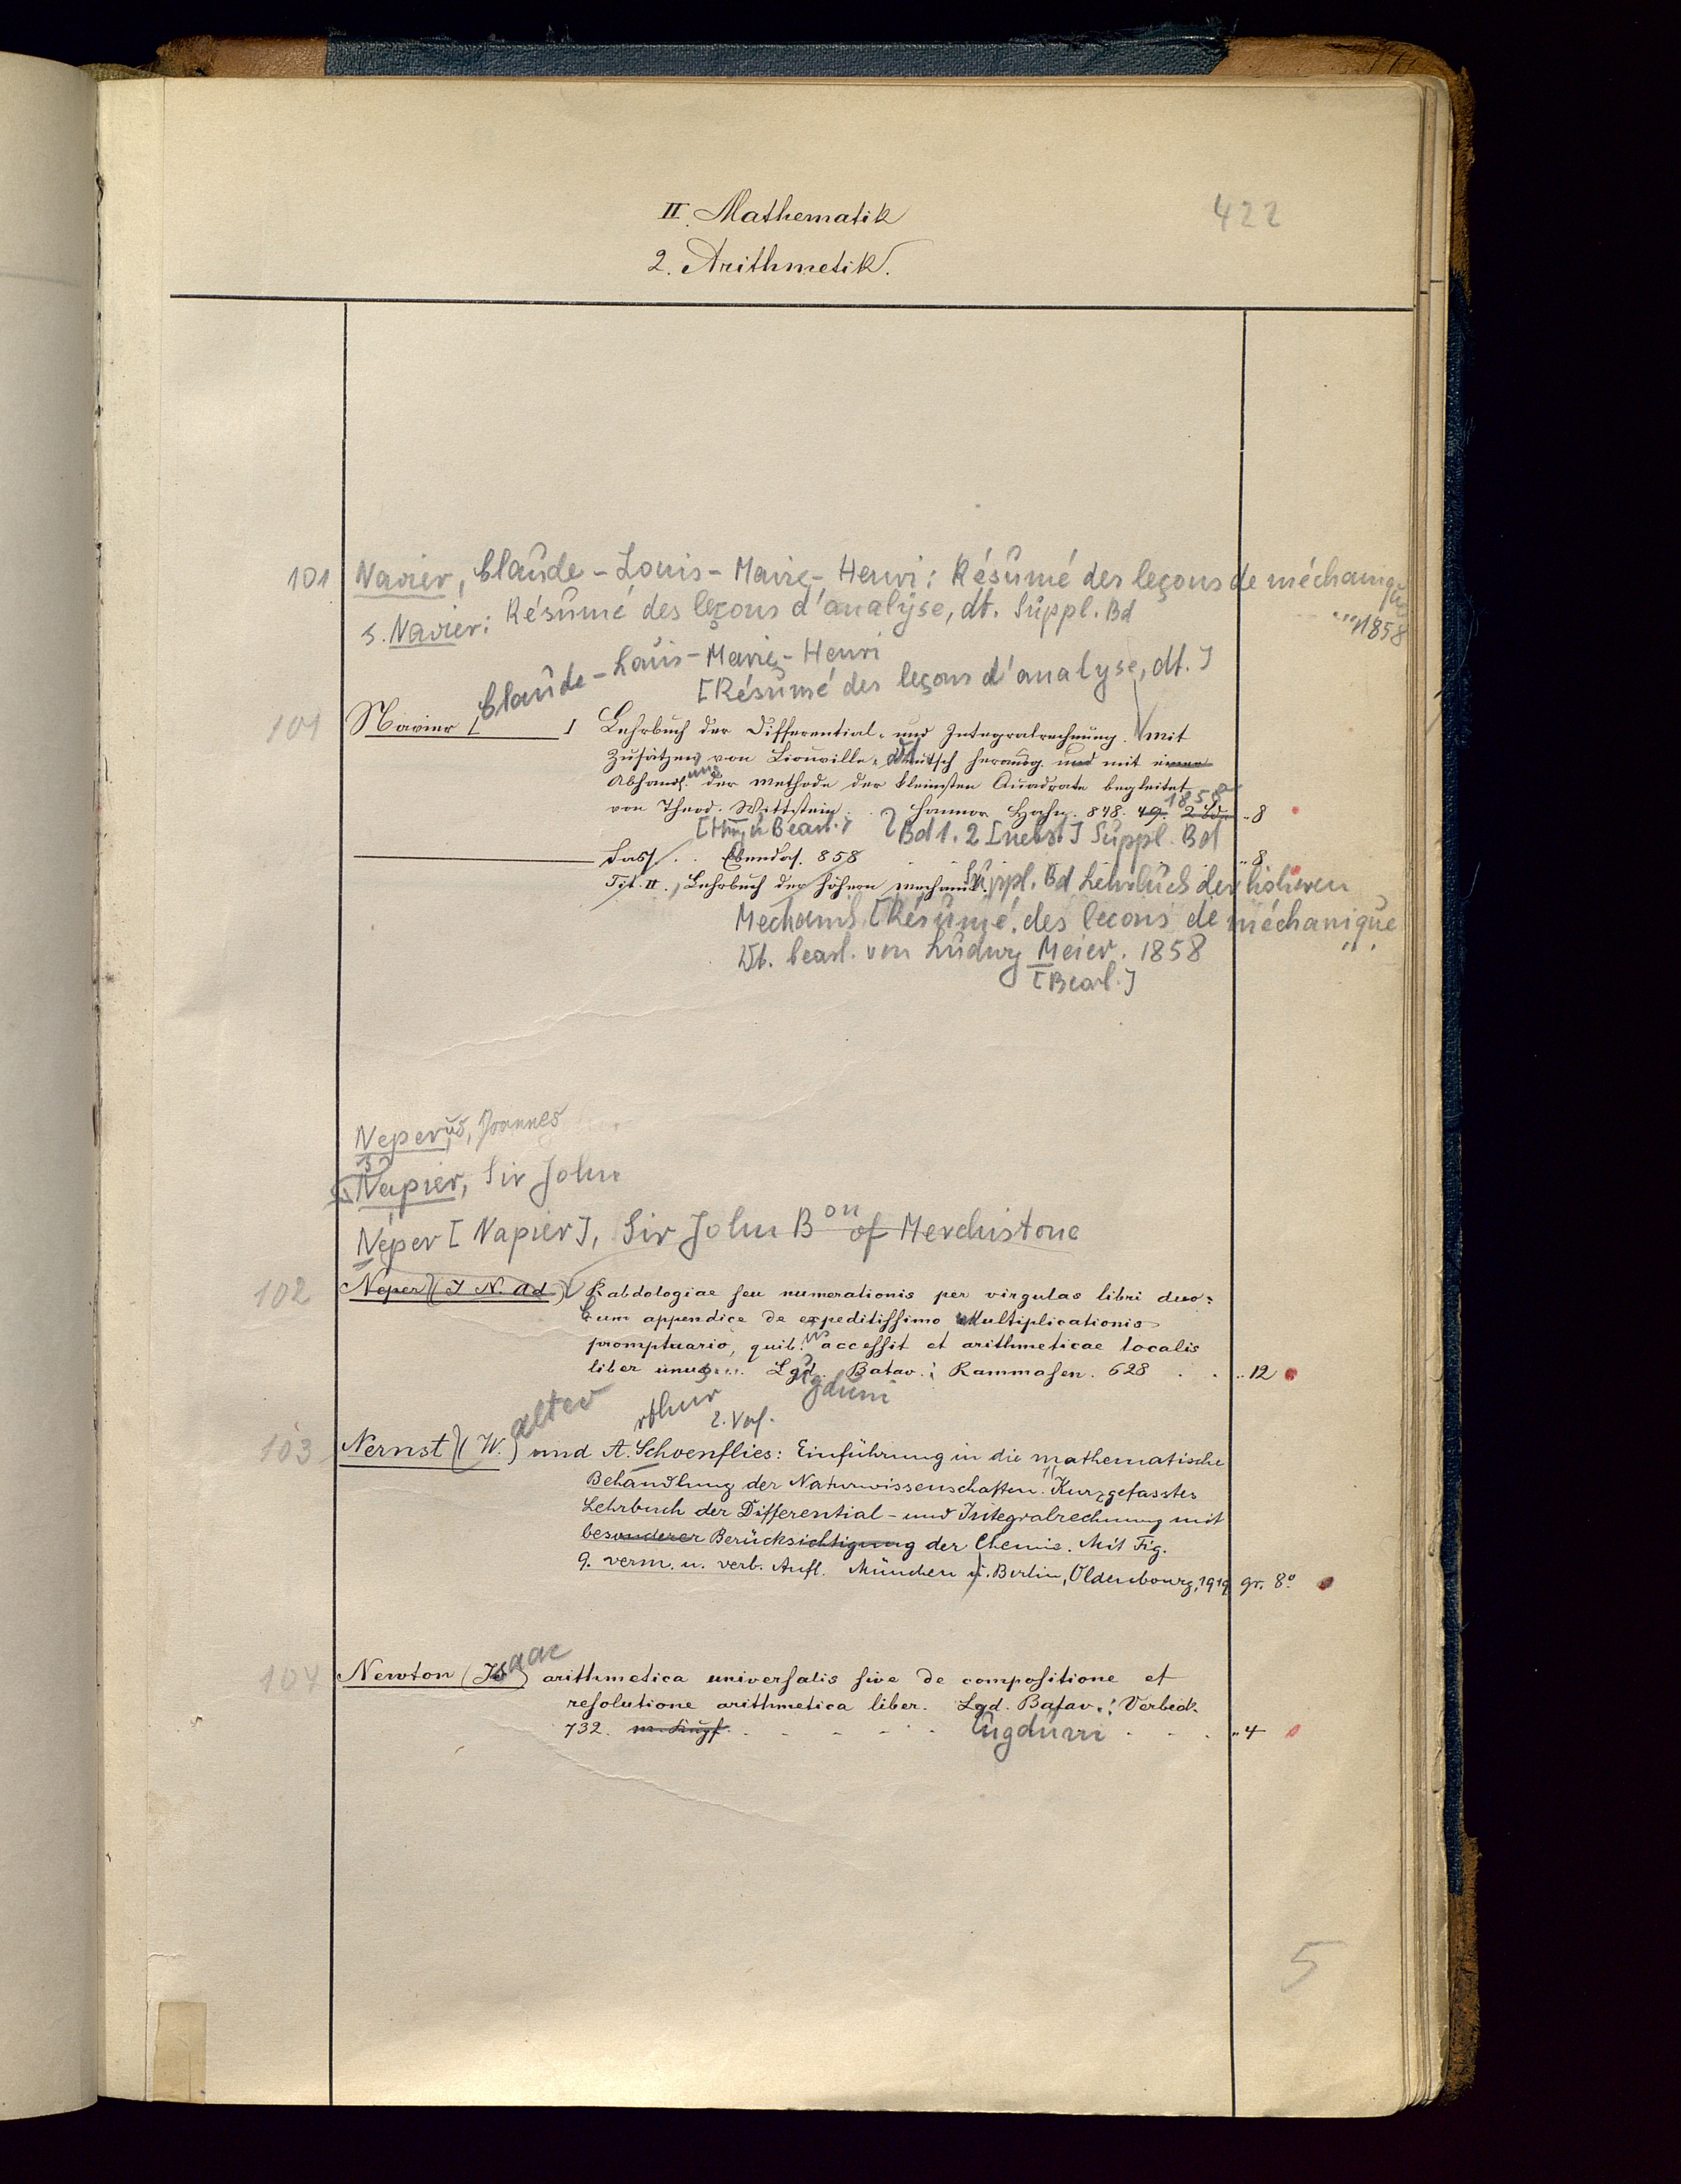 II. Mathematik
422
2. Arithmetik.
101 Navier, Claude-Louis-Marie-Henri: Résumé des leçons de méchanique
1858
s. Navier: Résumé des leçons d'analyse, dt. Suppl. Bd
Claude-Louis-Marie-Henri
[Résumé des leçons d'analyse, dt.]
101 Navier [ ] Lehrbuch der Differential- und Integralrechnung. mit
Zusätzen von Liouville. deutsch herausg. und mit einer
Abhandl. der Methode der kleinsten Quadrate begleitet
von Theod. Wittstein. Hannov. Hahn. 848. 49. 2 Bde 1858 " 8
[Hrsg u Bearb.] Bd 1. 2 [nebst] Suppl. Bd
Dass. . . Ebendas. 858 " 8
Tit. II., Lehrbuch der höhern Mechanik. Suppl. Bd Lehrbuch der höheren
Mechanik [Résumé des lecons de méchanique
Dt. bearb. von Ludwig Meier. 1858
[Bearb.]
Neperus, Joannes
s. Napier, Sir John
Neper [Napier], Sir John Bon of Merchistone
102 Neper (J N. Ad) Rabdologiae seu numerationis per virgulas libri duo:
Cum appendice de expeditissimo Multiplicationis
promptuario, quib.us accessit et arithmeticae localis
liber unus... Lgd. Batav.: Rammasen. 628 . . " 12
gduni
alter
rthur
2. Verf.
103 Nernst (W.) und A. Schoenflies: Einführung in die mathematische
Behandlung der Naturwissenschaften. Kurzgefasstes
Lehrbuch der Differential- und Integralrechnung mit
besonderer Berücksichtigung der Chemie. Mit Fig.
9. verm. u. verb. Aufl. München u. Berlin, Oldenbourg, 1919 gr. 8°
104 Newton (Isaac) arithmetica universalis sive de compositione et
resolutione arithmetica liber. Lgd. Batav.: Verbeck.
732. m. Kupf. ugduni " 4
5